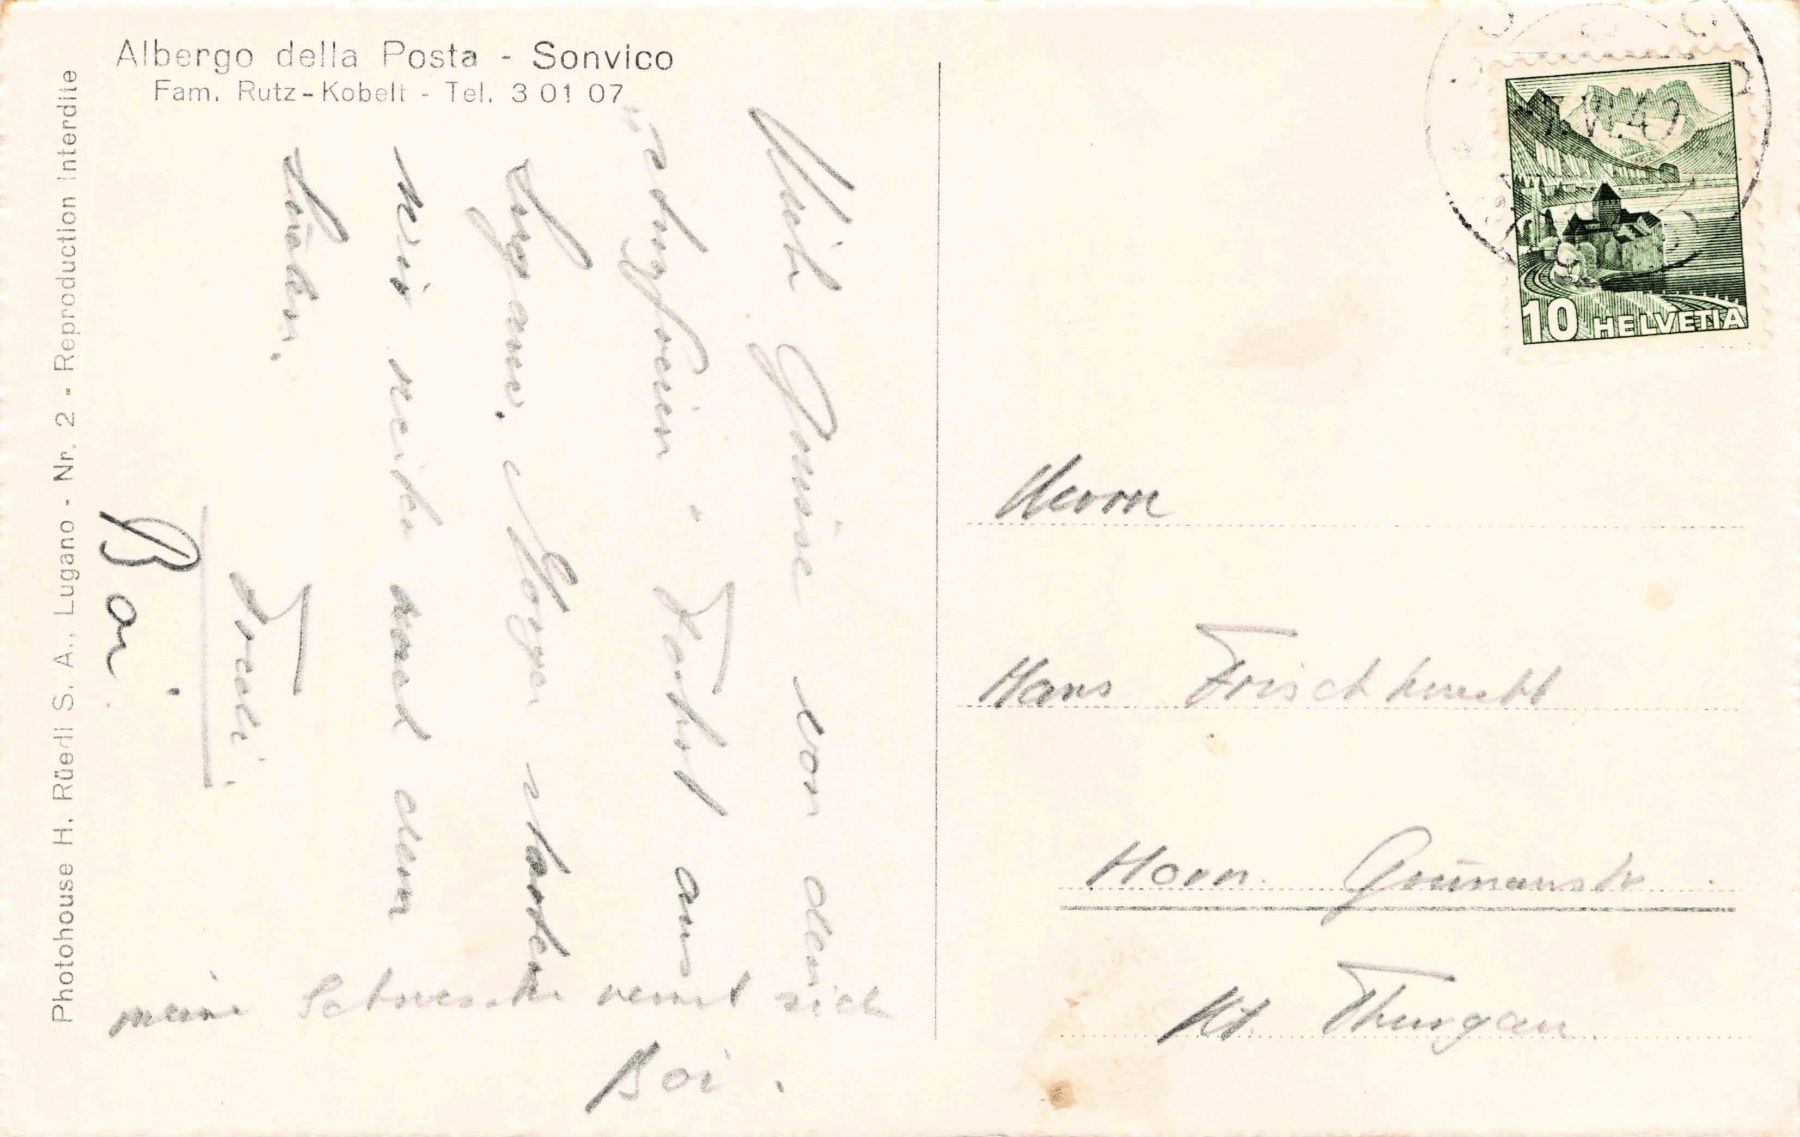 Albergo della Posta - Sonvico
Fam. Rutz-Kobelt - Tel. 3 01 07
Photohouse H. Rüedi S. A., Lugano - Nr. 2 - Reproduction Interdite
Viele Grüsse von der
Fahrt aus
Lugano. Morgen starten
wir weiter nach dem
Süden.
Fredi
Boi
meine Schwester nennt sich
Boi.
10 HELVETIA
Herrn
Hans Frischknecht
Horn. Grünaustr
Kt. Thurgau.